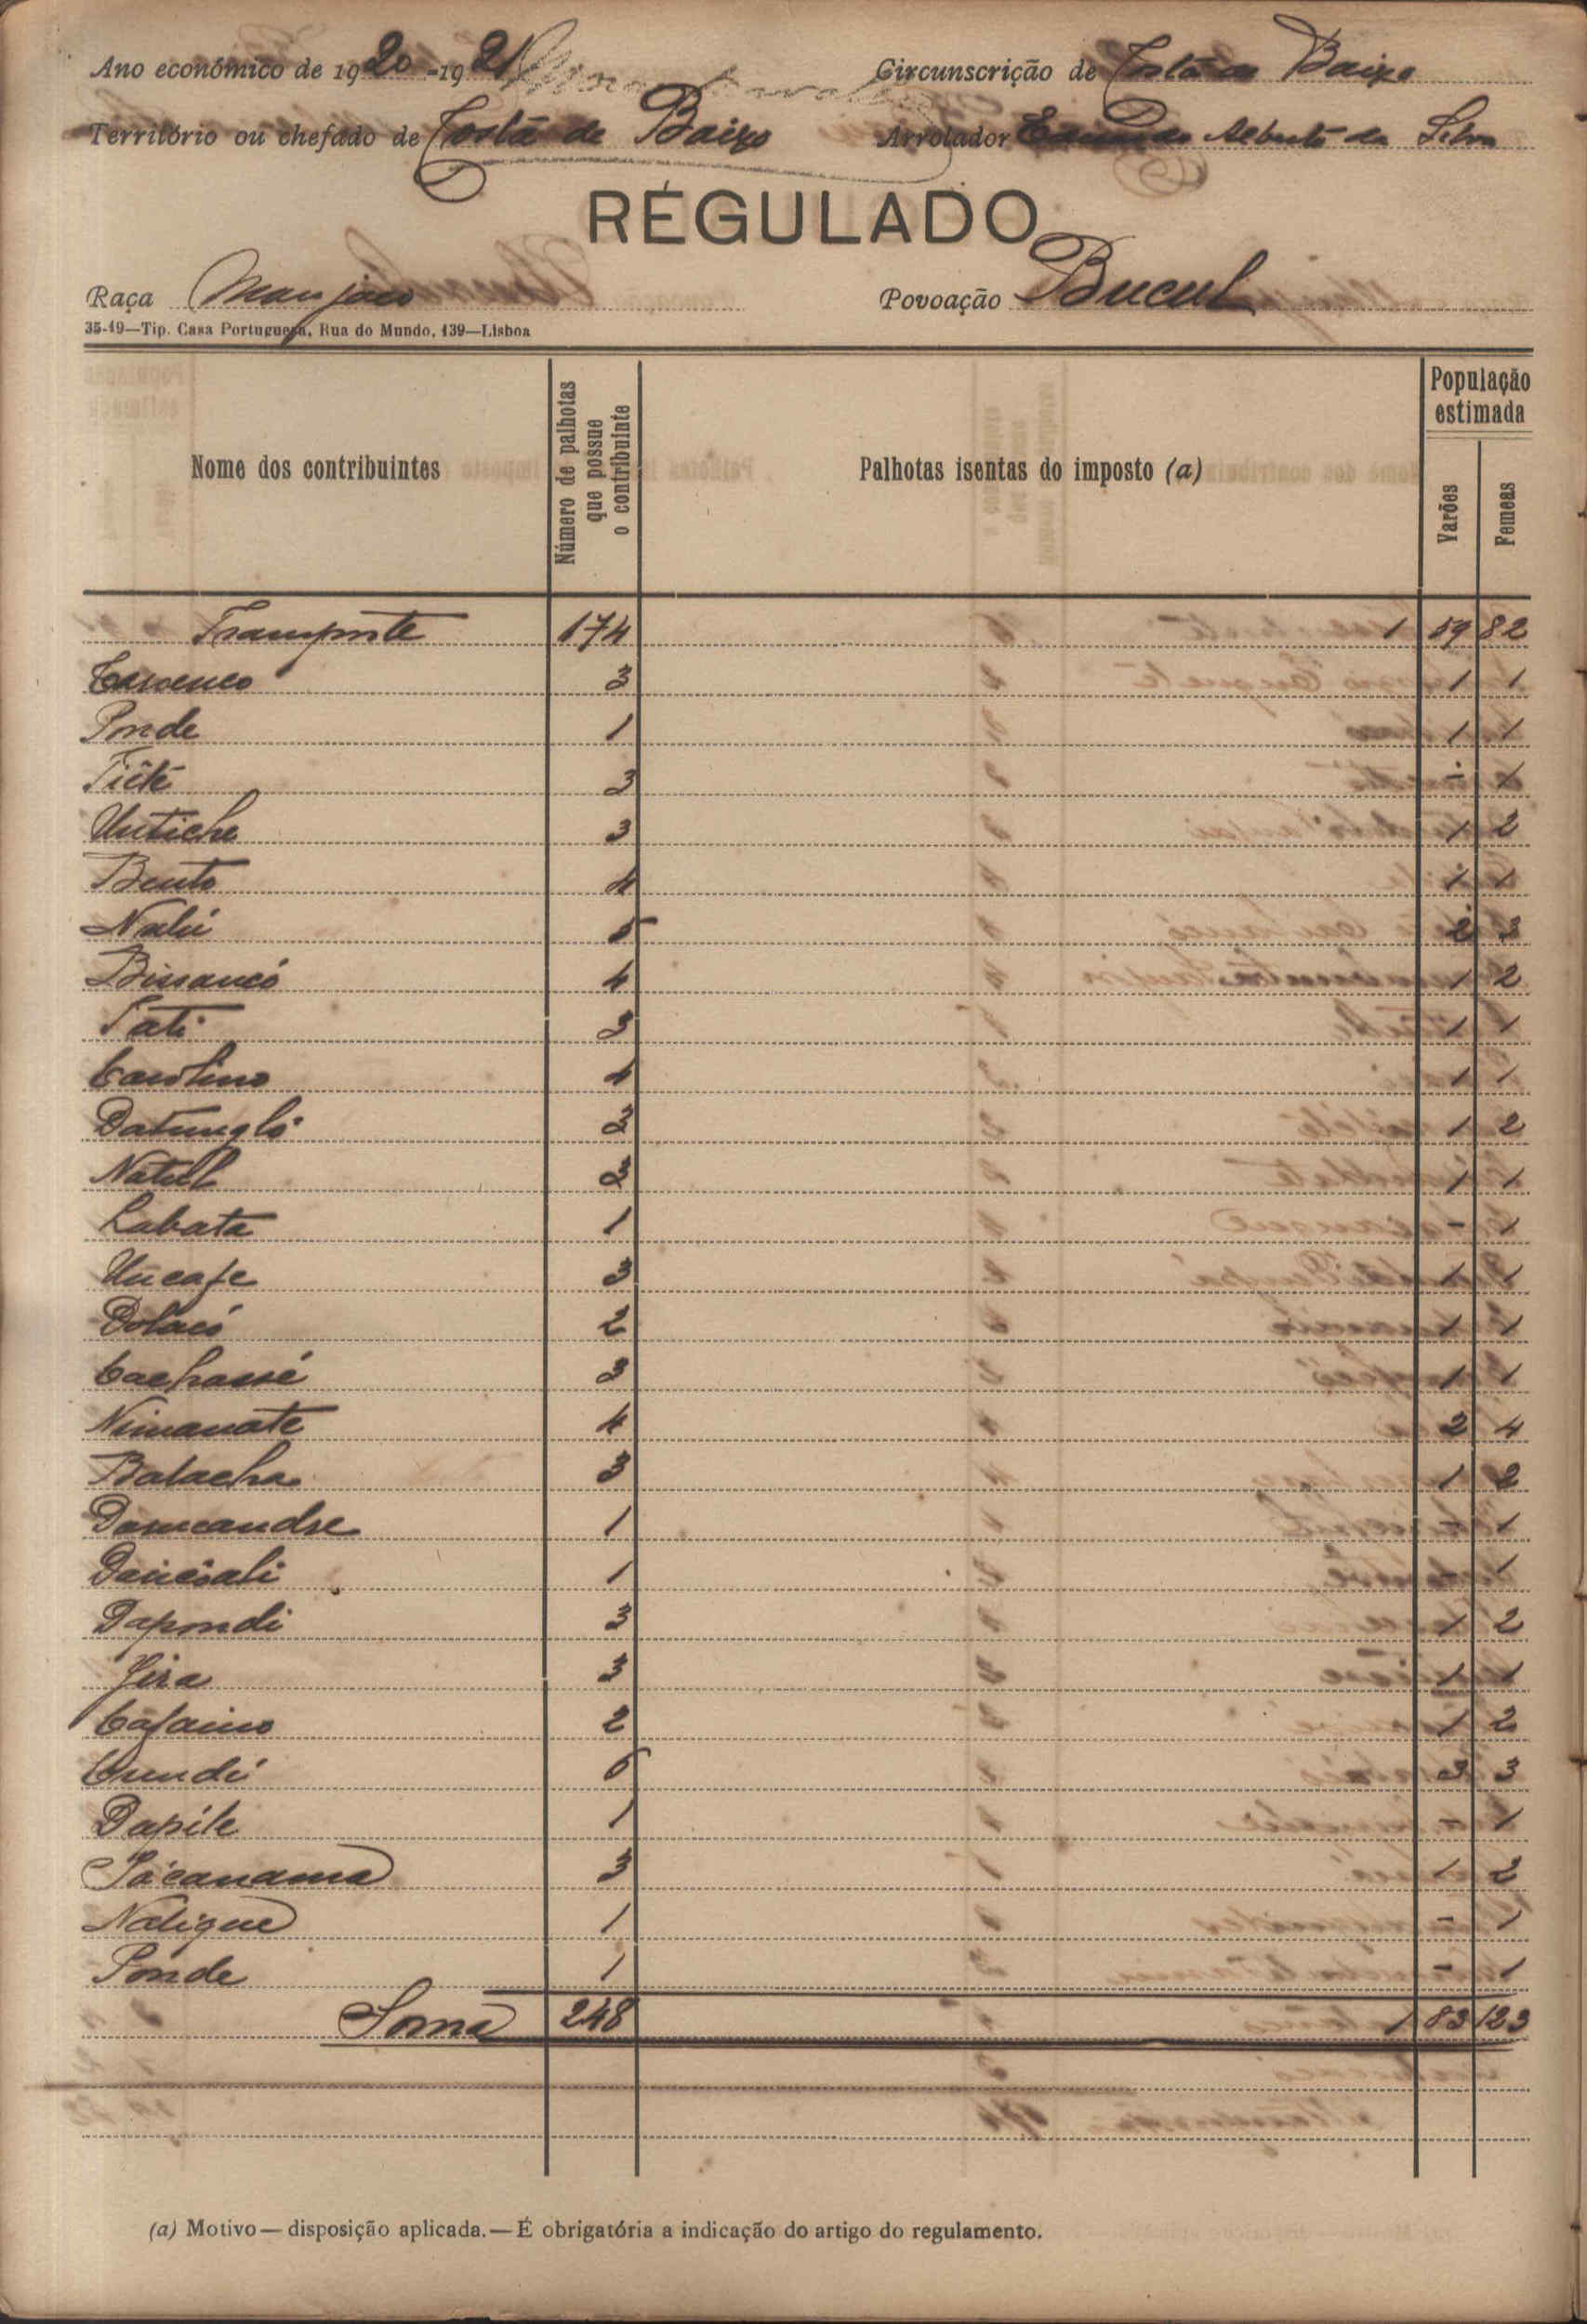 Ano económico de 1920-1921 Circunscrição de Costa de Baixo
Território ou chefado de Costa de Baixo Arrolador Alberto da Silva
RÉGULADO
Raça Manjaco Povoação Bucul
35-19—Tip. Casa Portuguesa, Rua do Mundo, 139—Lisboa
Nome dos contribuintes
Número de palhotas que possue o contribuinte
Palhotas isentas do imposto (a)
População estimada
Varões
Femeas
Transporte 174 1 59 82
3 1 1
Ponde 1 1 1
Tiêté 3 - 1
Untiche 3 1 2
Bento 4 1 1
Nalú 5 2 3
Bissancó 4 1 2
Tati 3 1 1
Carolino 4 1 1
Datungló 3 1 2
Natul 3 1 1
Labata 1 - 1
Uncafe 3 1 1
Dolacó 2 1 1
Cachassé 3 1 1
Nimanate 4 2 4
Balacha 3 1 2
Damcandre 1 - 1
1 - 1
Dapondi 3 1 2
Jira 3 1 1
Cafaino 2 1 2
Cundé 6 3 3
Dapile 1 - 1
Pácanama 3 1 2
Natique 1 - 1
Ponde 1 - 1
Soma 248 1 83 123
(a) Motivo—disposição aplicada.—É obrigatória a indicação do artigo do regulamento.